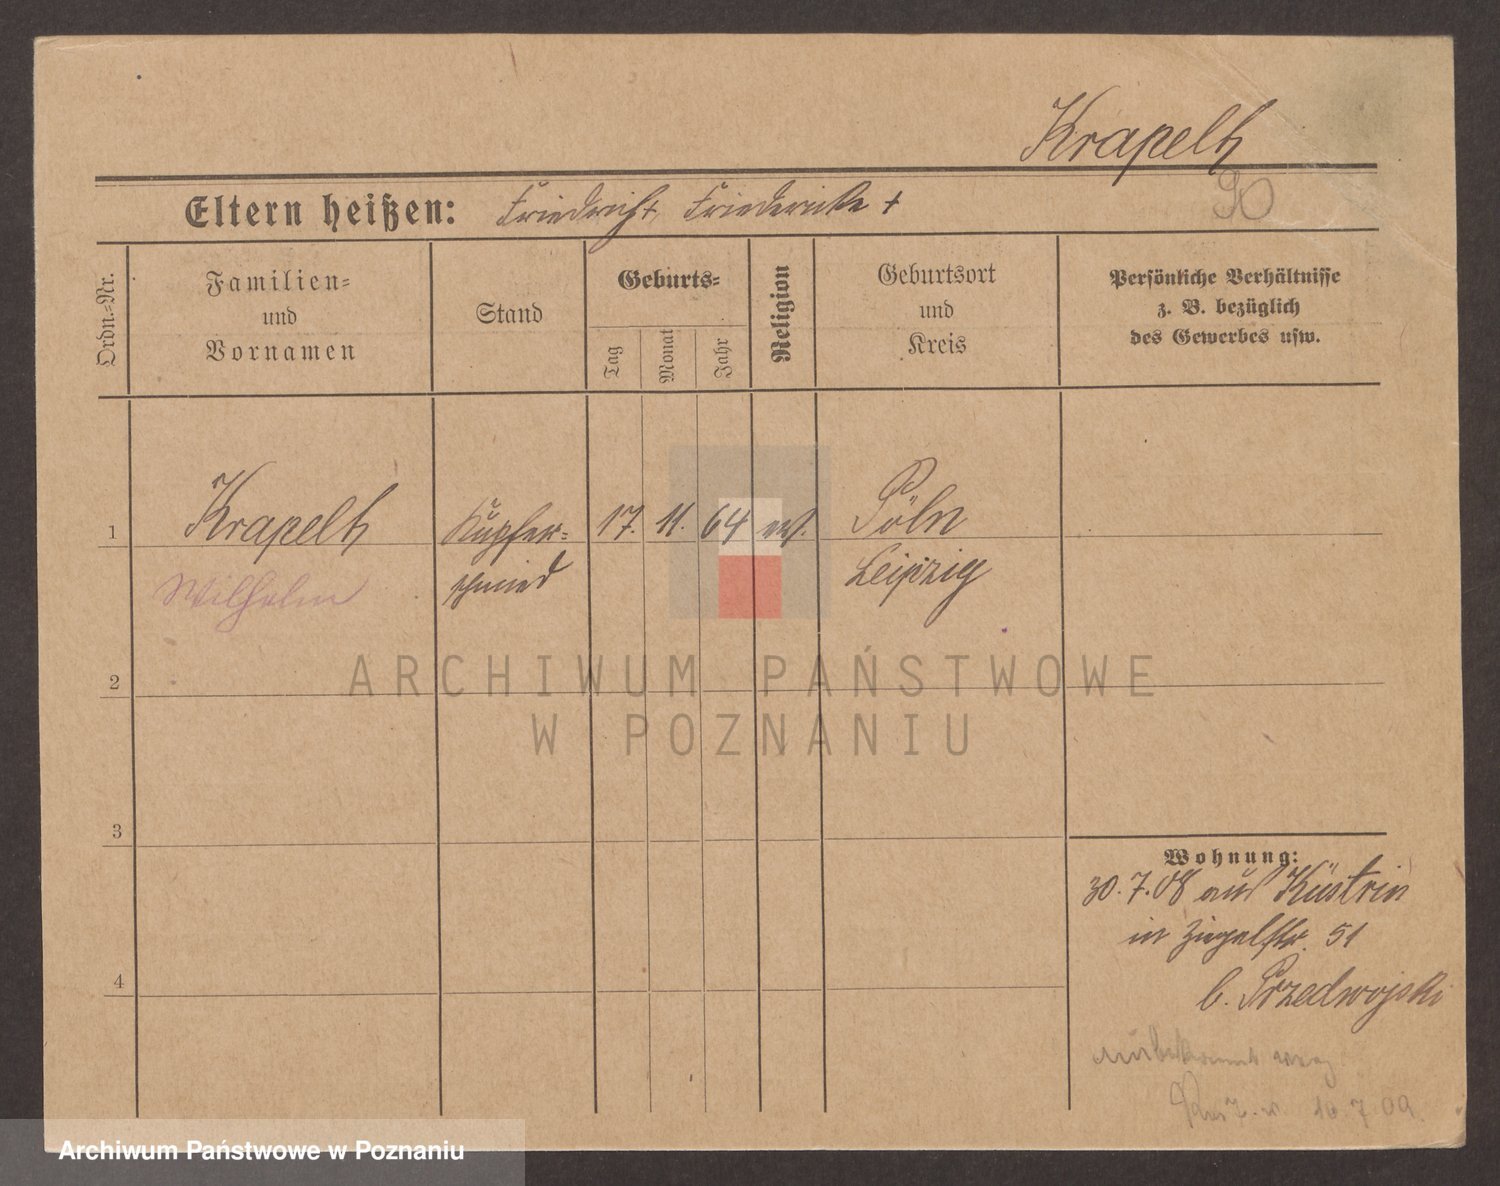 Krapelh
90
Eltern heißen: Friedrich +, Friederike +
Ordn.-Nr.
Familien- und Vornamen
Stand
Geburts-
Tag
Monat
Jahr
Religion
Geburtsort und Kreis
Persönliche Verhältnisse
z. B. bezüglich
des Gewerbes usw.
1 Krapelh Kupfer= 17. 11. 64 ev. Pöln
Wilhelm schmied Leipzig
2
3
4
Wohnung:
30.7.08 aus Küstrin
in Ziegelstr. 51
b. Przedwojski
unbekannt weg
16 7 09.
ARCHIWUM PAŃSTWOWE
W POZNANIU
Archiwum Państwowe w Poznaniu